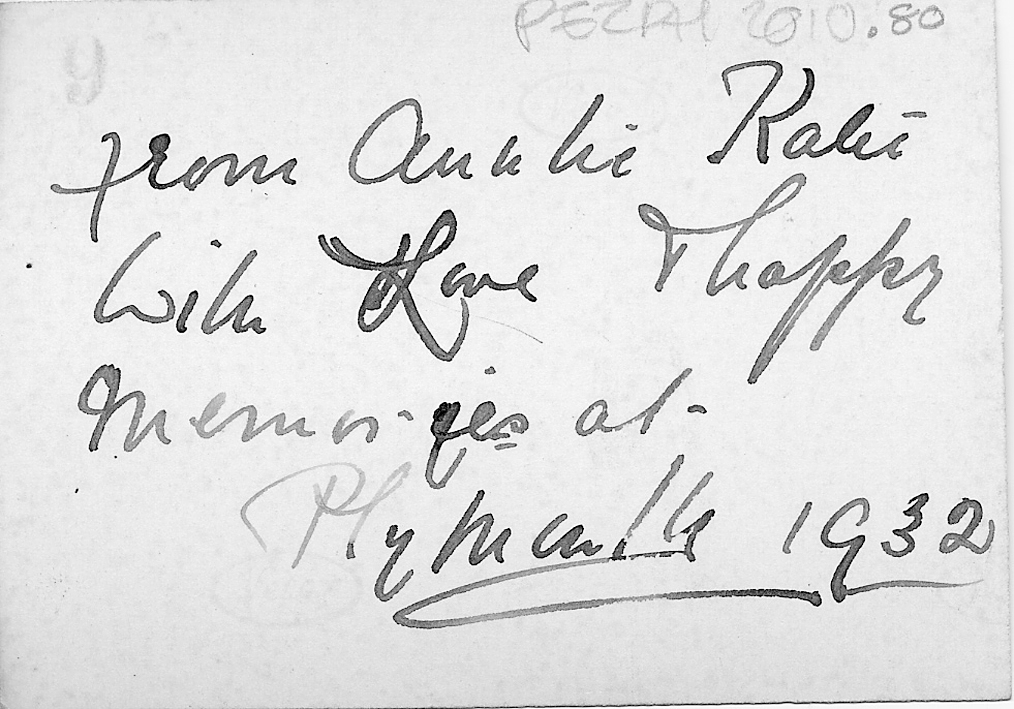 PEZPH 2010.80
9
from Auntie Katie
With Love & happy
Memories at
Plymouth 1932